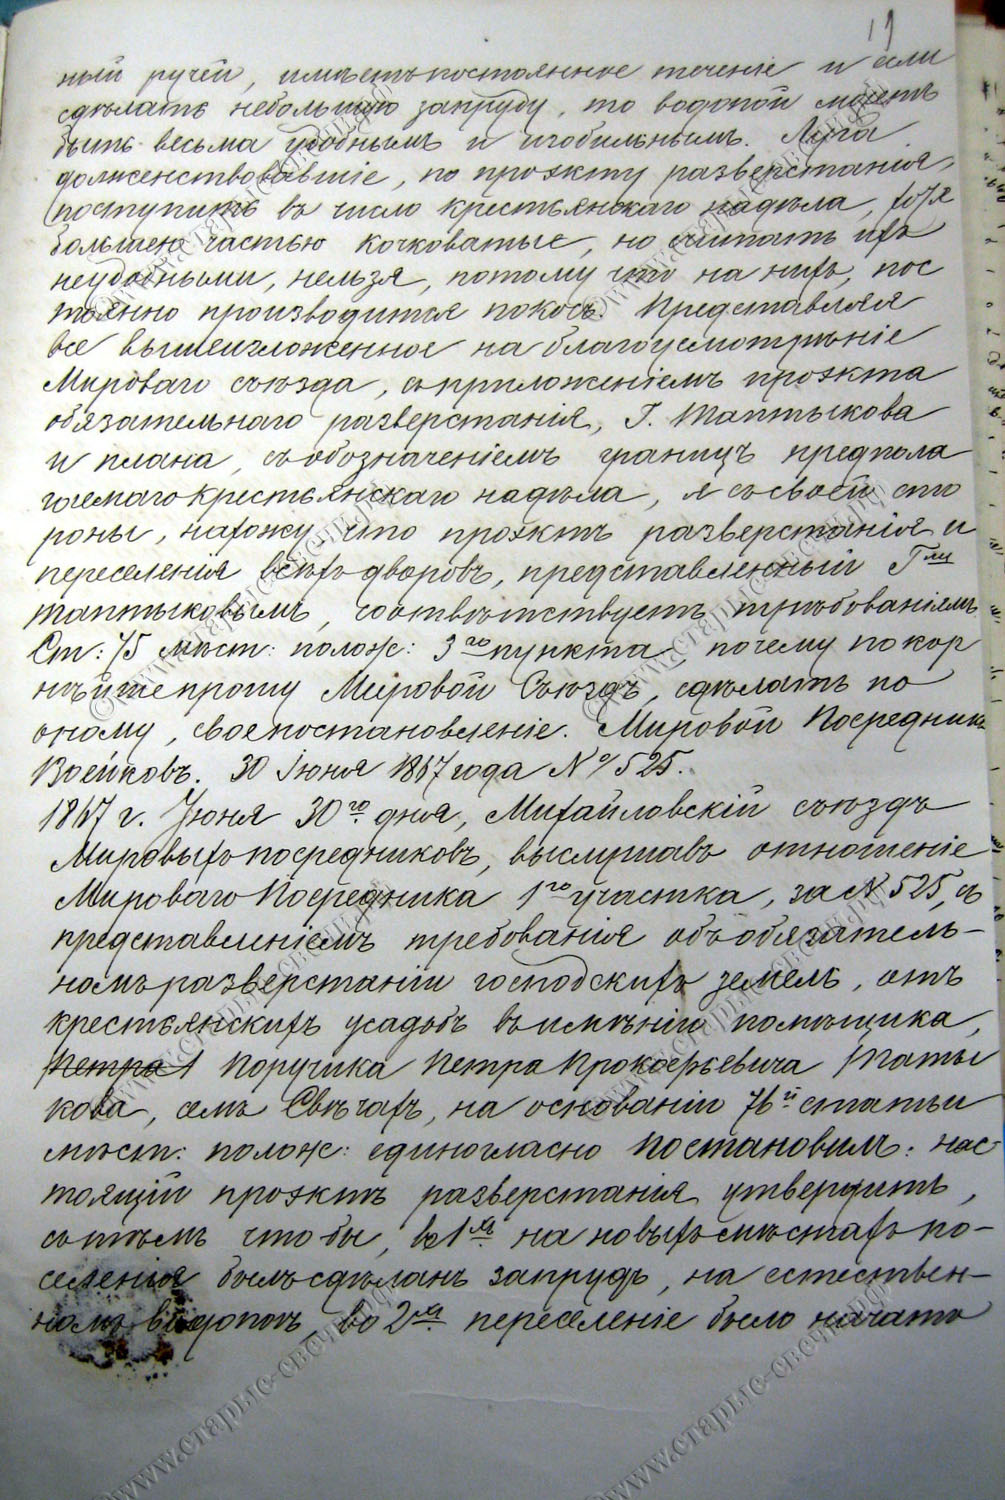 19
ный ручей, имѣетъ постоянное теченіе и если
сдѣлать небольшую запруду, то водопой можетъ
быть весьма удобнымъ и изобильнымъ. Луга
долженствовавшіе, по проэкту разверстанія,
поступить въ число крестьянскаго надѣла, хотя
большею частью кочковатые, но считать ихъ
неудобными, нельзя, потому что на нихъ, пос
тоянно производится покосъ. Представляя
все вышеизложенное на благоусмотрѣніе
Мироваго съѣзда, съ приложеніемъ проэкта
обязательнаго разверстанія, Г. Таптыкова
и плана, съ обозначеніемъ границъ предпола
гаемаго крестьянскаго надѣла, я съ своей сто
роны, нахожу что проэктъ разверстанія и
переселенія всѣхъ дворовъ, представленный Г-мъ
Таптыковымъ, соотвѣтствуетъ трѣбованіямъ
Ст: 75 мѣст: полож: 3го пункта почему покор
нѣйше прошу Мировой Съѣздъ, сдѣлать по
оному, свое постановленіе. Мировой Посредникъ
Воейковъ. 30 Іюня 1867 года № 525.
1867 г. Іюня 30го дня, Михайловскій съѣздъ
Мировыхъ посредниковъ, выслушавъ отношеніе
Мироваго Посредника 1го участка, за № 525, съ
представленіемъ требованія объ обязатель-
номъ разверстаніи господскихъ земель, отъ
крестьянскихъ усадьбъ въ имѣніи помѣщика,
Петра Поручика Петра Прокофьевича Тапты
кова, селѣ Свѣчахъ, на основаніи 76й статьи
мѣст: полож: единогласно постановилъ: нас-
тоящій проэктъ разверстанія утвердить,
съ тѣмъ что бы, во 1хъ на новыхъ мѣстахъ по-
селенія былъ сдѣланъ запрудъ, на естествен-
номъ водопоѣ, во 2хъ переселеніе было начато
©www.старыс-свечи.рф